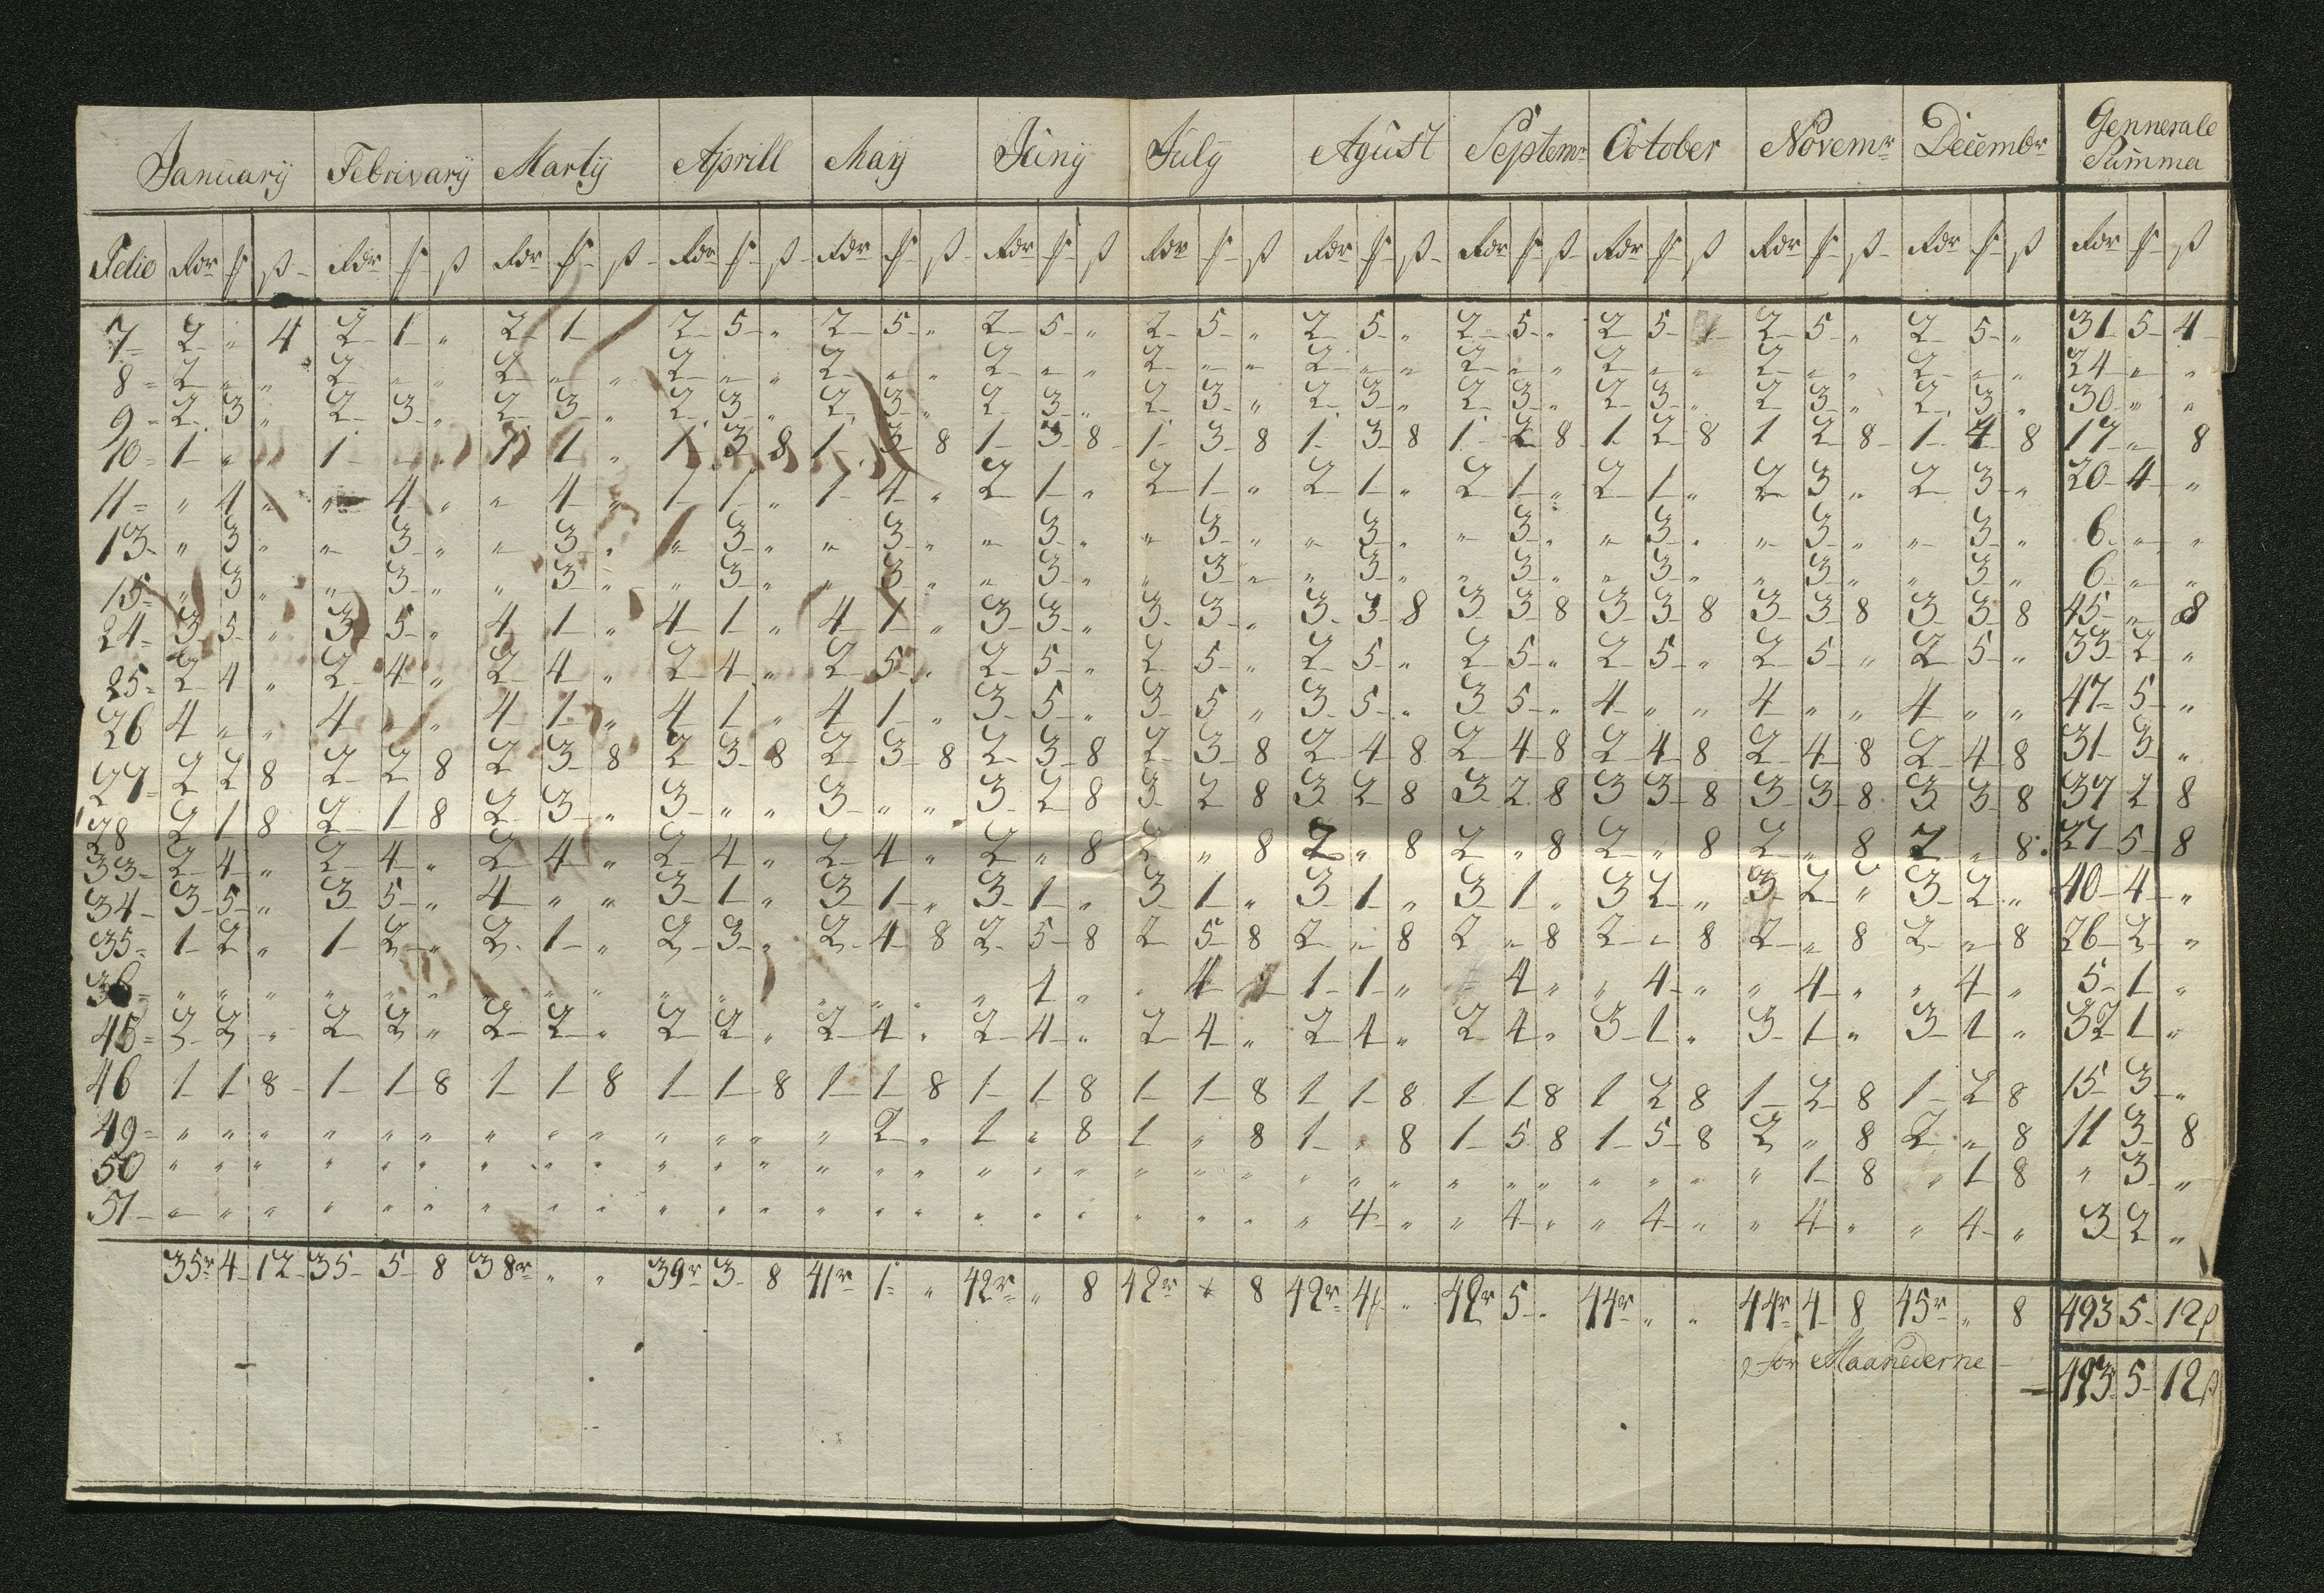 Januarÿ Februvarÿ Martÿ Aprill Maÿ Junÿ Julÿ Agust Septemr October Novemr Decembr Gennerale
Summa
Folio Rdr ſ ß Rdr ſ ß Rdr ſ ß Rdr ſ ß Rdr ſ ß Rdr ſ ß Rdr ſ ß Rdr ſ ß Rdr ſ ß Rdr ſ ß Rdr ſ ß Rdr ſ ß Rdr ſ ß
7 2 " 4 2 1 " 2 1 2 5 " 2 5 " 2 5 " 2 5 " 2 5 " 2 5 " 2 5 2 5 " 2 5 " 31 5 4
8 2 " " 2 " " 2 " " 2 " " 2 " " 2 " " 2 " " 2 " " 2 " " 2 " " 2 " " 2 " " 24 " "
9 2 3 " 2 3 " 2 3 " 2 3 " 2 3 " 2 3 " 2 3 " 2 3 " 2 3 " 2 3 " 2 3 " 2 3 " 30 " "
10 1 " " 1 " " 1 1 " 1 3 8 1 3 8 1 3 8 1 3 8 1 3 8 1 2 8 1 2 8 1 2 8 1 4 8 17 " 8
11 " 4 " " 4 " " 4 " 1 1 " 1 4 " 2 1 " 2 1 " 2 1 " 2 1 " 2 1 " 2 3 " 2 3 " 20 4 "
13 " 3 " " 3 " " 3 " " 3 " " 3 " " 3 " " 3 " " 3 " " 3 " " 3 " " 3 " " 3 " 6 " "
15 " 3 " " 3 " " 3 " " 3 " " 3 " " 3 " " 3 " " 3 " " 3 " " 3 " " 3 " " 3 " 6 " "
24 3 5 " 3 5 " 4 1 " 4 1 " 4 1 " 3 3 " 3 3 " 3 3 8 3 3 8 3 3 8 3 3 8 3 3 8 45 " 8
25 2 4 " 2 4 " 2 4 " 2 4 " 2 5 " 2 5 " 2 5 " 2 5 " 2 5 " 2 5 " 2 5 " 2 5 " 33 2 "
26 4 " " 4 " " 4 1 " 4 1 " 4 1 " 3 5 " 3 5 " 3 5 " 3 5 " 4 " " 4 " " 4 " " 47 5 "
27 2 2 8 2 2 8 2 3 8 2 3 8 2 3 8 2 3 8 2 3 8 2 4 8 2 4 8 2 4 8 2 4 8 2 4 8 31 3 "
28 2 1 8 2 1 8 2 3 " 3 " " 3 " " 3 2 8 3 2 8 3 2 8 3 2 8 3 3 8 3 3 8 3 3 8 37 2 8
33 2 4 " 2 4 " 2 4 " 2 4 " 2 4 " 2 " 8 2 " 8 2 " 8 2 " 8 2 " 8 2 " 8 2 " 8 27 5 8
34 3 5 " 3 5 " 4 " " 3 1 " 3 1 " 3 1 " 3 1 " 3 1 " 3 1 " 3 2 " 3 2 " 3 2 " 40 4 "
35 1 2 " 1 2 " 2 1 " 2 3 " 2 4 8 2 5 8 2 5 8 2 " 8 2 " 8 2 " 8 2 " 8 2 " 8 26 2 "
36 " " " " " " " " " " " " " " " " 4 " " 4 1 1 " 4 " " 4 " " 4 " " 4 " 5 1 "
45 2 2 " 2 2 " 2 2 " 2 2 " 2 4 " 2 4 " 2 4 " 2 4 " 2 4 " 3 1 " 3 1 " 3 1 " 32 1 "
46 1 1 8 1 1 8 1 1 8 1 1 8 1 1 8 1 1 8 1 1 8 1 1 8 1 1 8 1 2 8 1 2 8 1 2 8 15 3 "
49 " " " " " " " " " " " " " 2 " 1 " 8 1 " 8 1 " 8 1 5 8 1 5 8 2 " 8 2 " 8 11 3 8
50 " " " " " " " " " " " " " " " " " " " " " " " " " " " " " " " 1 8 " 1 8 " 3 "
51 " " " " " " " " " " " " " " " " " " " " " " 4 " " 4 " " 4 " " 4 " " 4 " 3 2 "
35r 4 12 35 5 8 38r " " 39r 3 8 41r 1 " 42r " 8 42r 8 42r 4 " 42r 5 " 44r " " 44r 4 8 45r " 8 493 5 12ß
for Maanederne
493 5 12ß